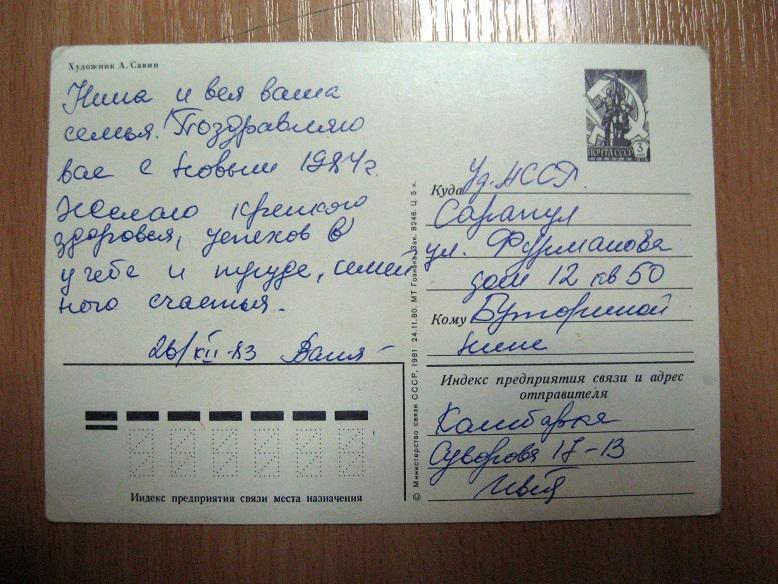 Художник А. Савин
Нина и вся ваша
семья! Поздравляю
вас с Новым 1984 г.
Желаю крепкого
здоровья, успехов в
учебе и труде, семей
ного счастья.
26/XII-83 Ваня
ПОЧТА СССР 3
Куда Уд. АССР.
Сарапул
ул. Фурманова
дом 12 кв 50
Кому Буториной
Нине
Индекс предприятия связи и адрес
отправителя
Камбарка
Суворова 17-13
Индекс предприятия связи места назначения
© Министерство связи СССР, 1981 24.11.80. МТ Гознака. Зак. 8246. Ц. 5 к.